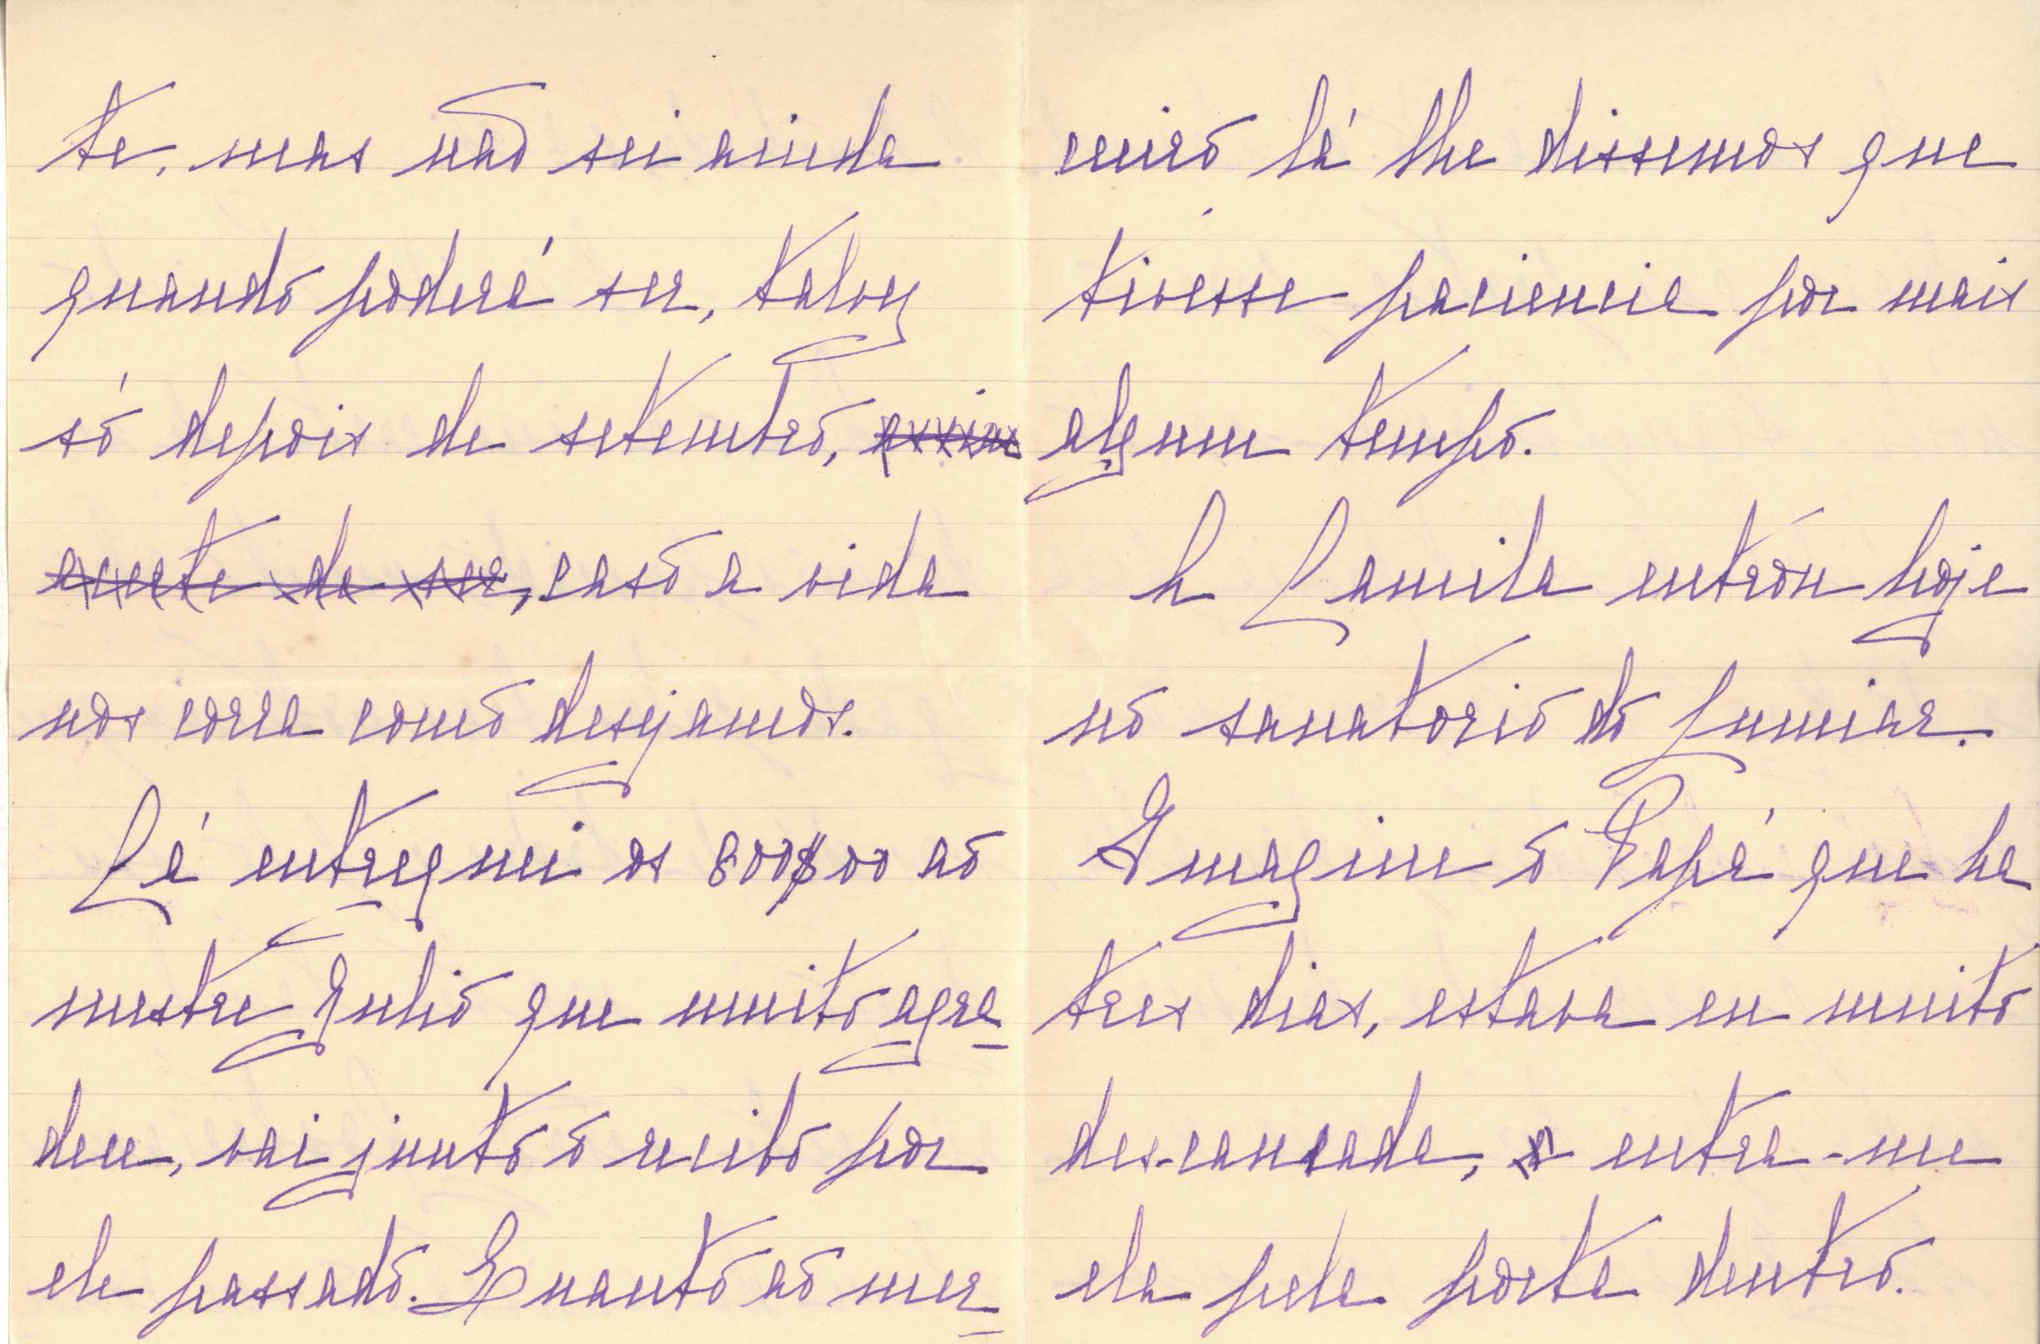 te, mas não sei ainda
quando poderá ser, talvez
só depois de setembro,
caso a vida
nos corra como desejamos.
Lá entreguei os 800$00 ao
mestre Julio que muito agra_
dece, vai junto o recibo por
ele passado. Quanto ao mer_
ceeiro lá lhe dissemos que
tivesse paciencia por mais
algum tempo.
A Camila entrou hoje
no sanatorio do Lumiar.
Imagine o Papá que ha
tres dias, estava eu muito
des-cançada, entra-me
ela pela porta dentro.